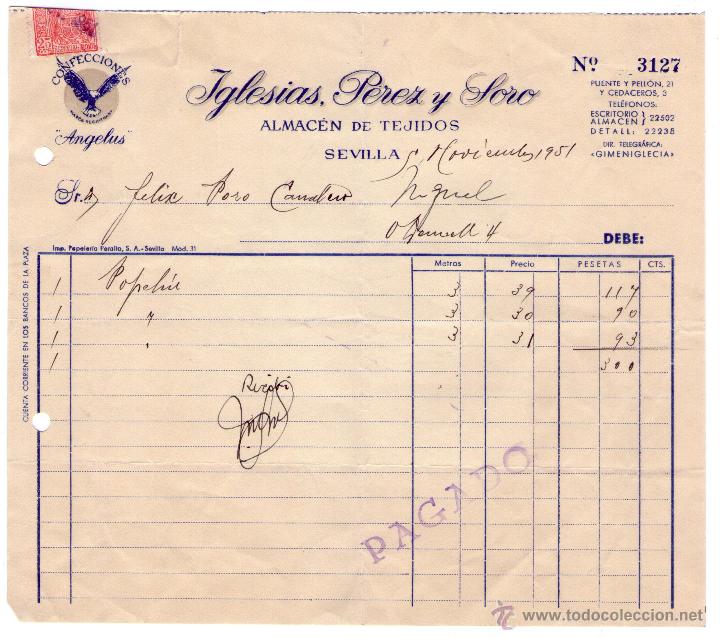 Nº 3127
CONFECCIONES
MARCA REGISTRADA
"Angelus"
Iglesias, Pérez y Soro
ALMACÉN DE TEJIDOS
PUENTE Y PELLÓN, 21
Y CEDACEROS, 3
TELÉFONOS:
ESCRITORIO } 22502
ALMACEN
DETALL: 22238
DIR. TELEGRÁFICA:
«GIMENIGLECIA»
SEVILLA 5 Noviembre 1951
Sr. D Felix Poro Miguel
4
DEBE:
Imp. Papelería Peralta, S. A.-Sevilla Mod. 31
CUENTA CORRIENTE EN LOS BANCOS DE LA PLAZA
Metros Precio PESETAS CTS.
1 Popelín 3 39 117
1 " 3 30 90
1 " 3 31 93
1 300
Recibí
PAGADO
www.todocoleccion.net